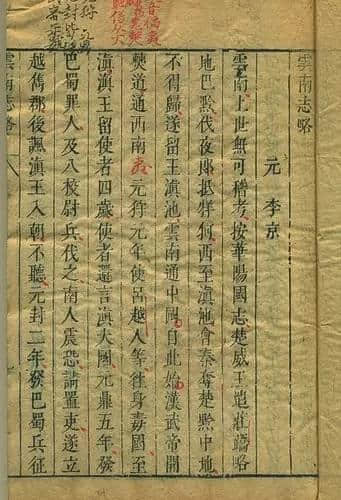 雲南志略
元 李京
雲南上世無可稽考按華陽國志楚威王遣莊蹻略
地巴黔伐夜郎抵牂牁西至滇池會秦奪楚黔中地
不得歸遂留王滇池雲南通中國自此始漢武帝開
僰道通西南夷元狩元年使呂越人等往身毒國至
滇滇王留使者四歲使者還言滇大國元鼎五年發
巴蜀罪人及八校尉兵伐之南人震恐請置吏遂立
越雋郡後諷滇王入朝不聽元封二年發巴蜀兵征
雲南志略